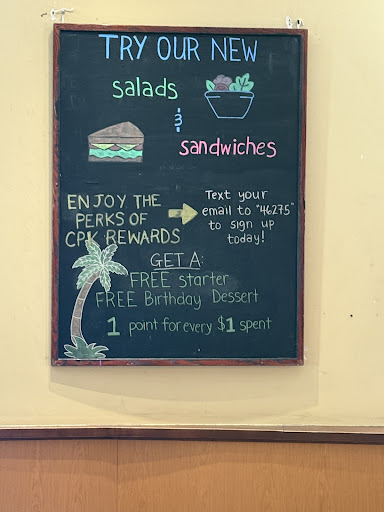 TRY OUR NEW
salads
&
sandwiches
ENJOY THE
PERKS OF
CPK REWARDS
Text your
email to "46275"
to sign up
today!
GET A:
FREE starter
FREE Birthday Dessert
1 point for every $1 spent